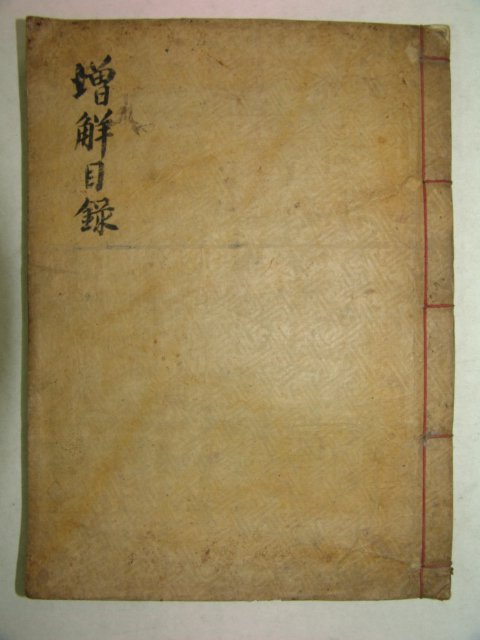 增解目錄